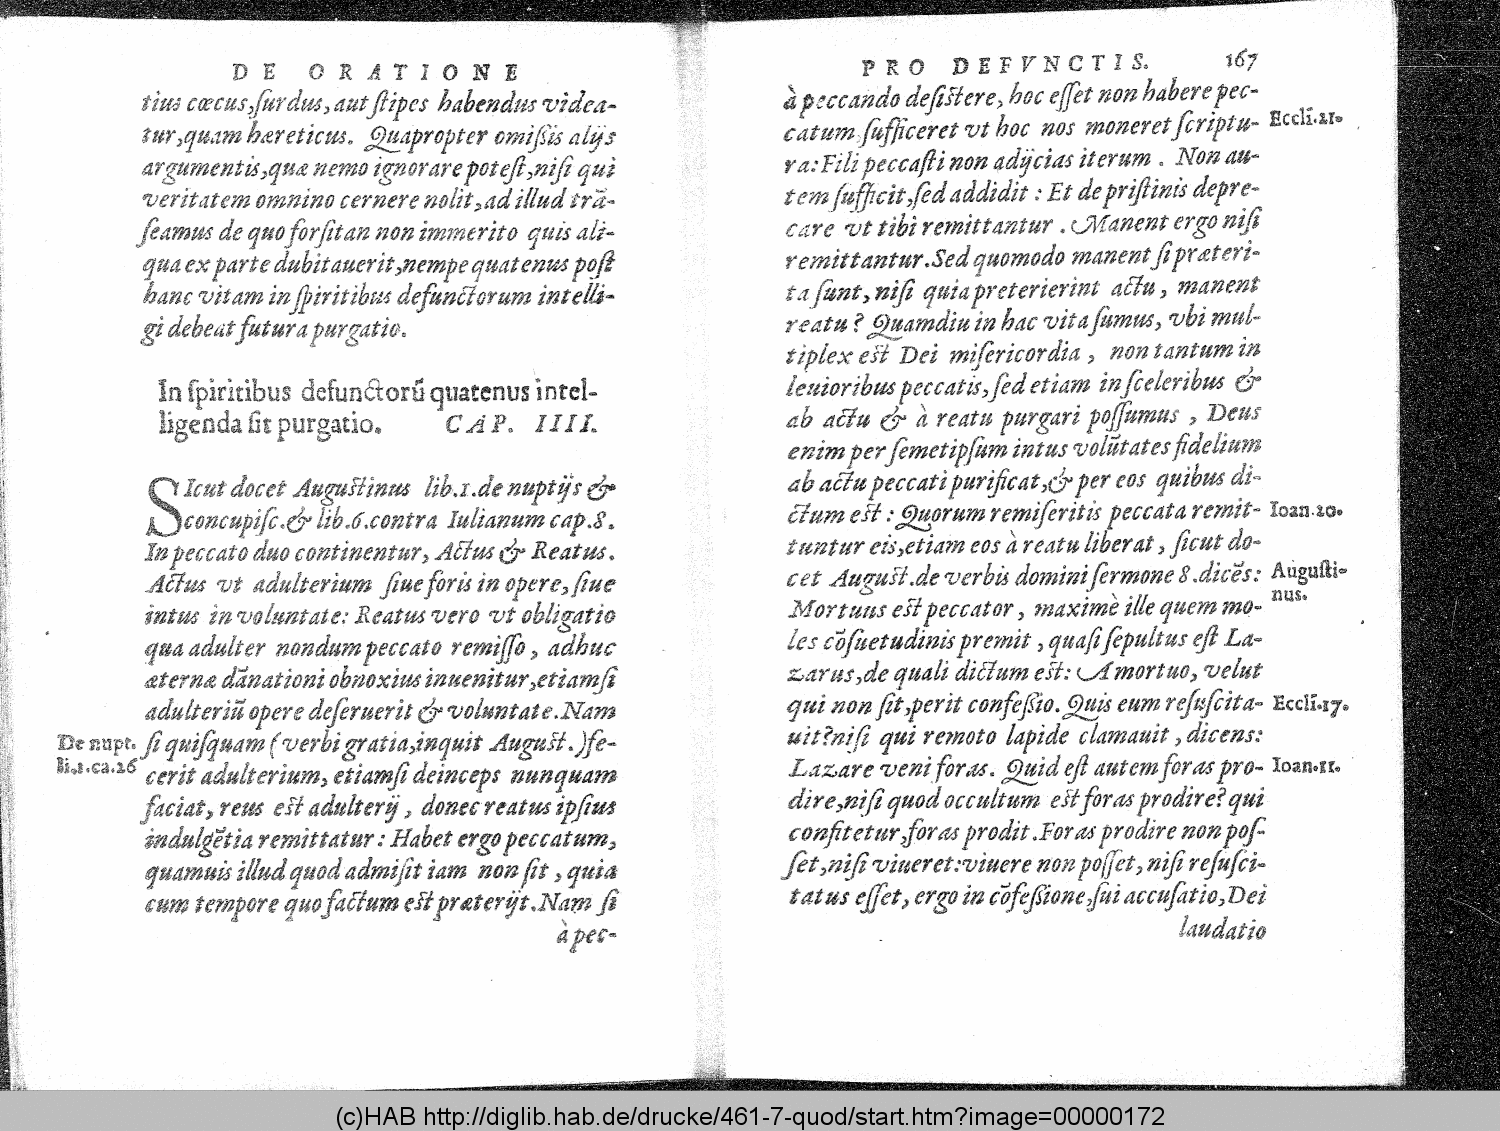 DE ORATIONE
tius cœcus,surdus, aut stipes habendus videa-
tur,quam hæreticus. Quapropter omißis alijs
argumentis,quæ nemo ignorare potest,nisi qui
veritatem omnino cernere nolit,ad illud trā-
seamus de quo forsitan non immerito quis ali-
qua ex parte dubitauerit,nempe quatenus post
hanc vitam in spiritibus defunctorum intelli-
gi debeat futura purgatio.
In spiritibus defunctorū quatenus intel-
ligenda sit purgatio. CAP. IIII.
SIcut docet Augustinus lib.1.de nuptijs &
concupisc.& lib.6.contra Iulianum cap.8.
In peccato duo continentur, Actus & Reatus.
Actus vt adulterium siue foris in opere, siue
intus in voluntate: Reatus vero vt obligatio
qua adulter nondum peccato remisso, adhuc
æternæ dānationi obnoxius inuenitur,etiamsi
adulteriū opere deseruerit & voluntate.Nam
De nupt. si quisquam (verbi gratia,inquit August.)fe-
li.1.ca.26 cerit adulterium, etiamsi deinceps nunquam
faciat, reus est adulterij, donec reatus ipsius
indulgētia remittatur: Habet ergo peccatum,
quamuis illud quod admisit iam non sit, quia
cum tempore quo factum est præterijt.Nam si
à pec-
PRO DEFVNCTIS. 167
à peccando desistere, hoc esset non habere pec-
catum sufficeret vt hoc nos moneret scriptu- Eccli.21.
ra: Fili peccasti non adijcias iterum. Non au-
tem sufficit,sed addidit: Et de pristinis depre-
care vt tibi remittantur. Manent ergo nisi
remittantur. Sed quomodo manent si præteri-
ta sunt, nisi quia preterierint actu, manent
reatu? Quamdiu in hac vita sumus, vbi mul-
tiplex est Dei misericordia, non tantum in
leuioribus peccatis, sed etiam in sceleribus &
ab actu & à reatu purgari possumus, Deus
enim per semetipsum intus volūtates fidelium
ab actu peccati purificat,& per eos quibus di-
ctum est: Quorum remiseritis peccata remit- Ioan.20.
tuntur eis,etiam eos à reatu liberat, sicut do-
cet August.de verbis domini sermone 8.dicēs: Augusti-
nus.
Mortuus est peccator, maximè ille quem mo-
les cōsuetudinis premit, quasi sepultus est La-
zarus,de quali dictum est: A mortuo, velut
qui non sit,perit confeßio. Quis eum resuscita- Eccli.17.
uit?nisi qui remoto lapide clamauit, dicens:
Lazare veni foras. Quid est autem foras pro- Ioan.11.
dire,nisi quod occultum est foras prodire? qui
confitetur,foras prodit. Foras prodire non pos-
set,nisi viueret:viuere non posset, nisi resusci-
tatus esset, ergo in cōfeßione,sui accusatio,Dei
laudatio
(c)HAB http://diglib.hab.de/drucke/461-7-quod/start.htm?image=00000172